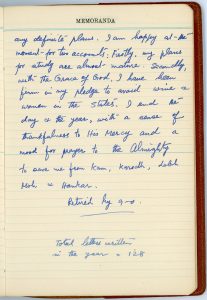 MEMORANDA
any definite plans. I am happy at the
moment for two accounts. Firstly, my plans
for study are almost mature. Secondly,
with the Grace of God, I have been
firm in my pledge to avoid wine &
women in the States. I end the
day & the year, with a sense of
thankfulness to His Mercy and a
mood for prayer to the Almighty
to save me from Kam, Karodh, Lobh
Moh & Hankar.
Retired by 9-0.
Total letters written
in the year = 128